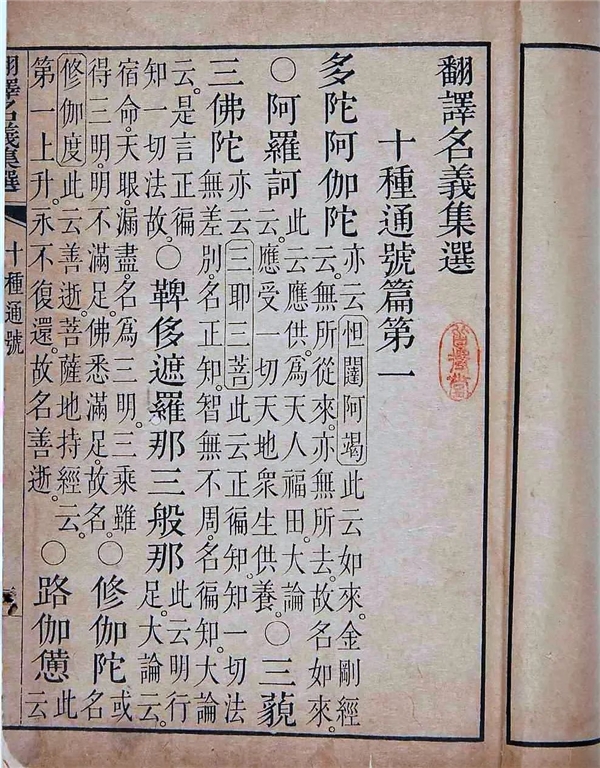 翻譯名義集選
十種通號篇第一
多陀阿伽陀亦云怛闥阿竭此云如來。金剛經云。無所從來。亦無所去。故名如來。
○阿羅訶此云應供。爲天人福田。大論云。應受一切天地衆生供養。○三藐
三佛陀亦云三耶三菩此云正徧知。知一切法無差別。名正知。智無不周。名徧知。大論
云。是言正徧知一切法故。○鞞侈遮羅那三般那此云明行足。大論云。
宿命。天眼。漏盡。名爲三明。三乘雖得三明。明不滿足。佛悉滿足。故名。○修伽陀或名
修伽度此云善逝。菩薩地持經云。第一上升。永不復還。故名善逝。○路伽憊此云
翻譯名義集選 十種通號